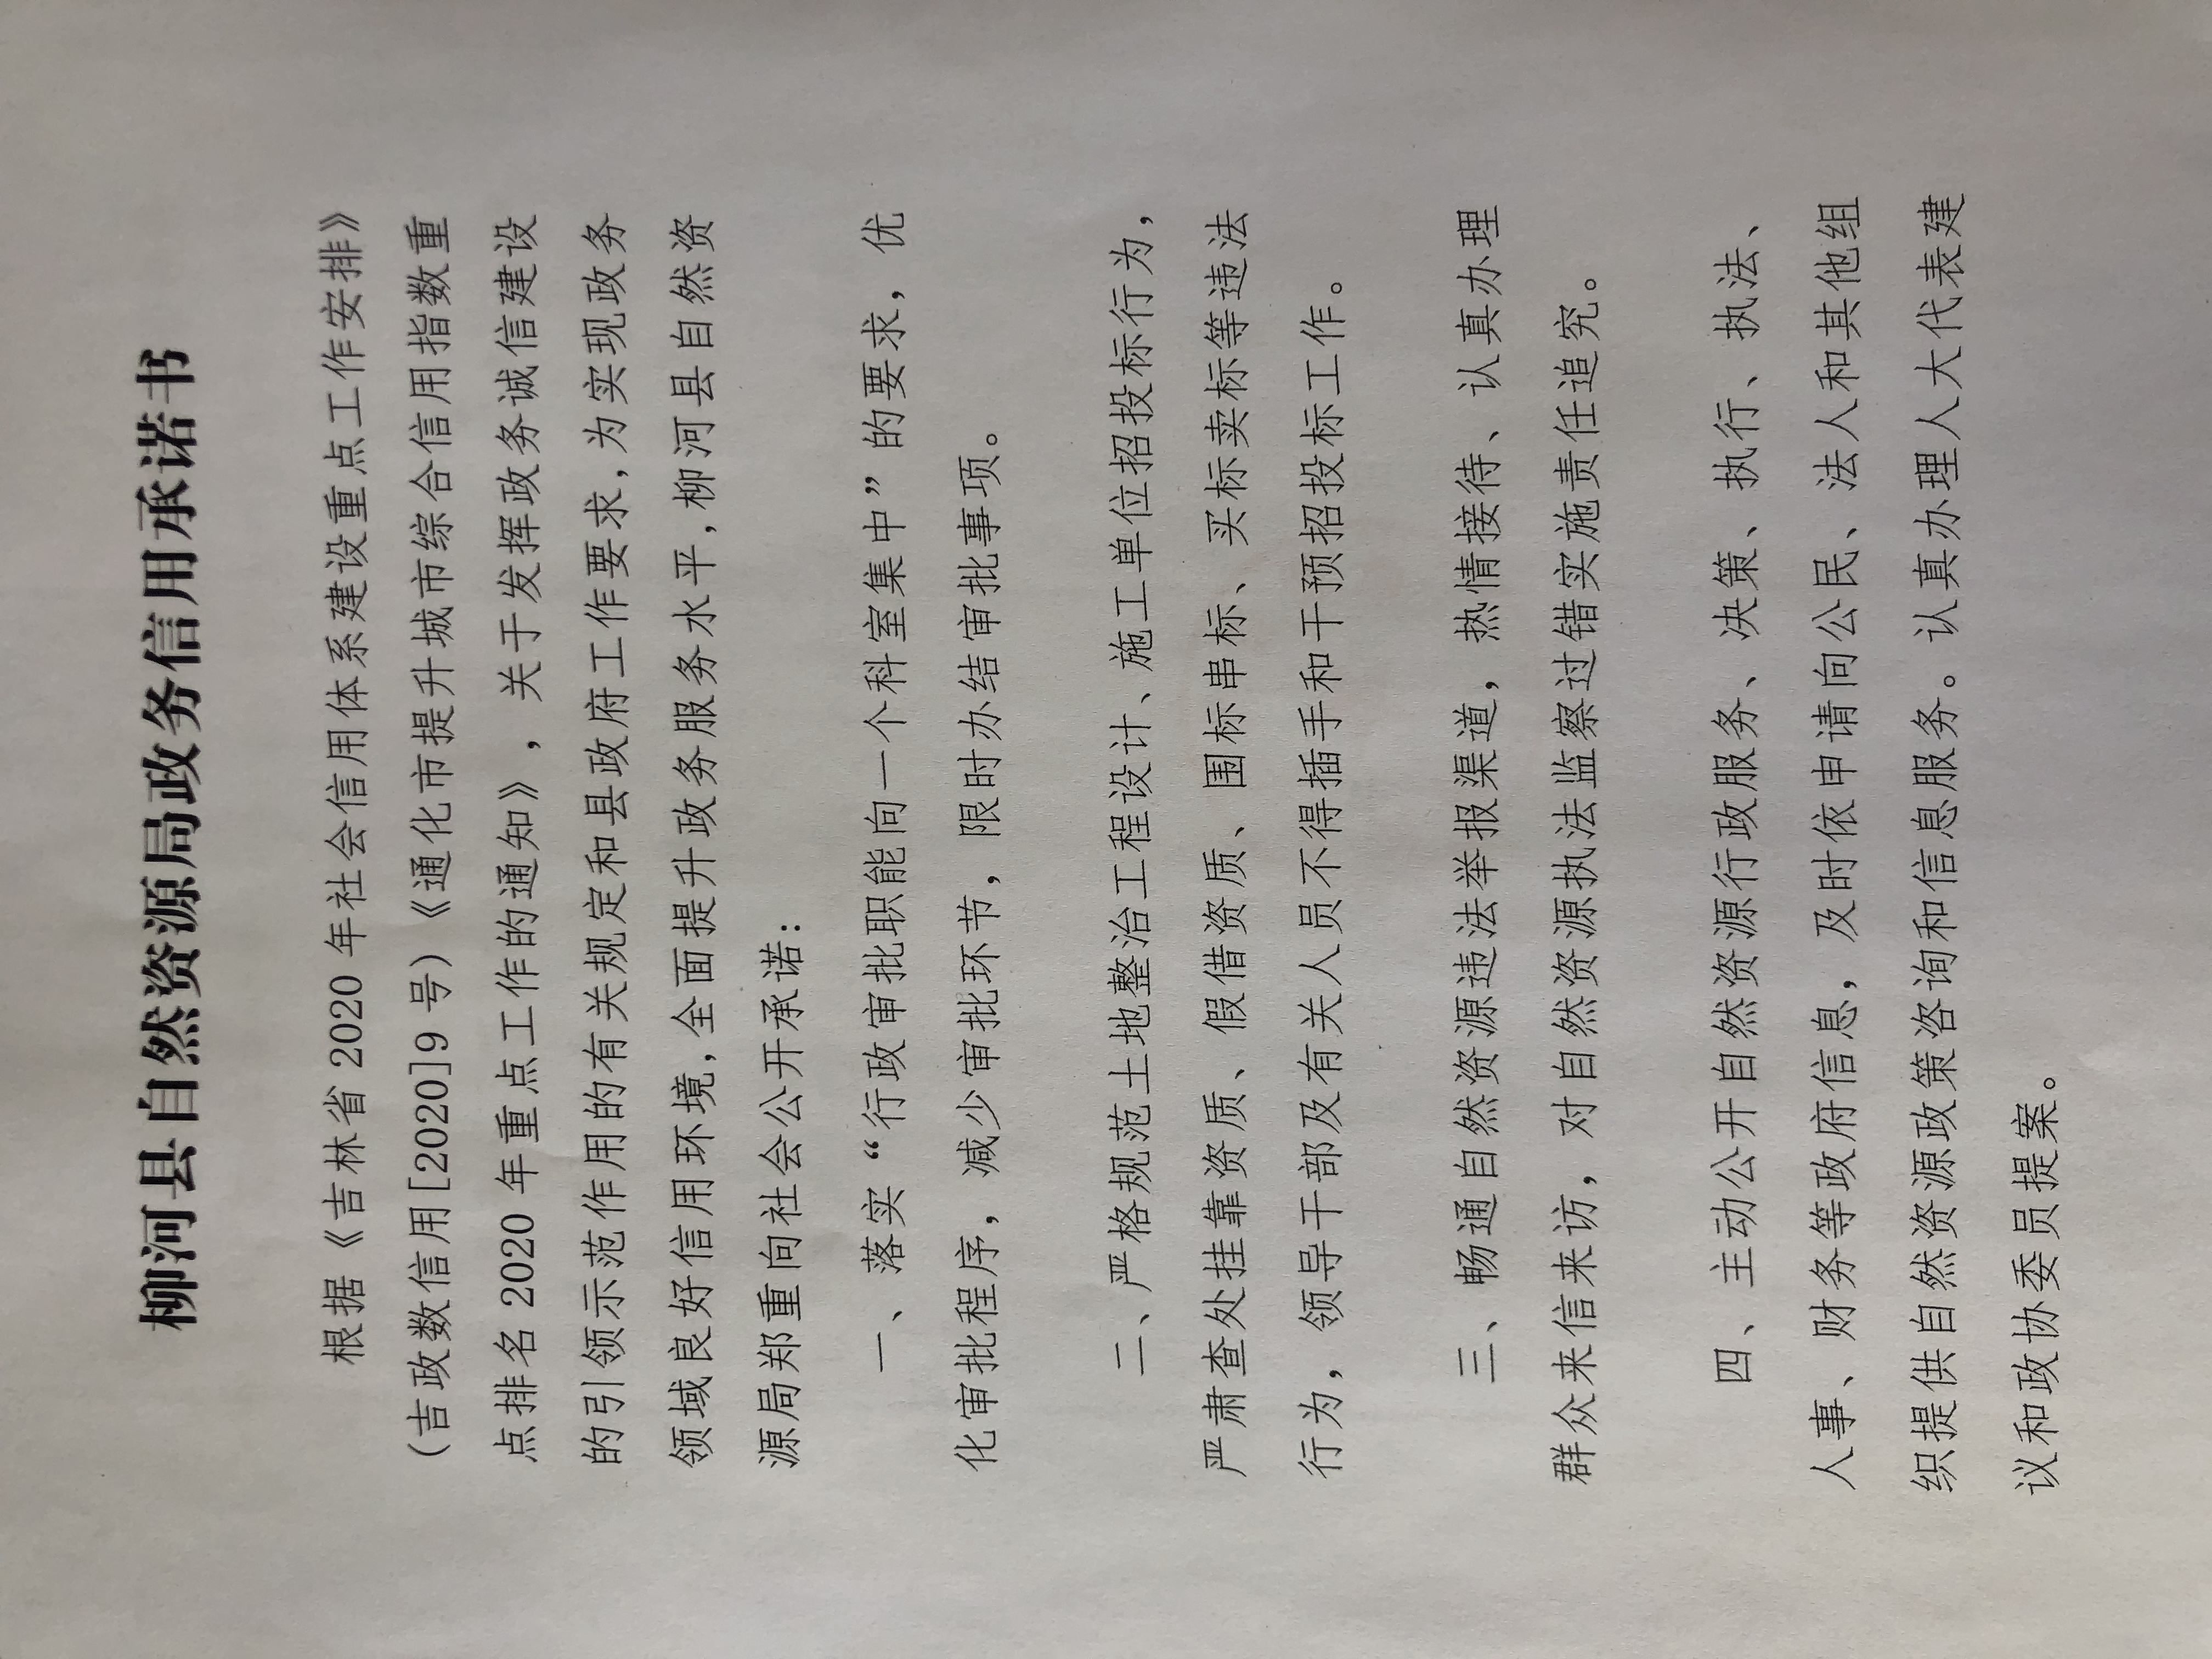 柳河县自然资源局政务信用承诺书
根据《吉林省 2020 年社会信用体系建设重点工作安排》
（吉政数信用[2020]9 号）《通化市提升城市综合信用指数重
点排名 2020 年重点工作的通知》，关于发挥政务诚信建设
的引领示范作用的有关规定和县政府工作要求,为实现政务
领域良好信用环境,全面提升政务服务水平,柳河县自然资
源局郑重向社会公开承诺：
一、落实“行政审批职能向一个科室集中”的要求，优
化审批程序，减少审批环节，限时办结审批事项。
二、严格规范土地整治工程设计、施工单位招投标行为，
严肃查处挂靠资质、假借资质、围标串标、买标卖标等违法
行为，领导干部及有关人员不得插手和干预招投标工作。
三、畅通自然资源违法举报渠道，热情接待、认真办理
群众来信来访，对自然资源执法监察过错实施责任追究。
四、主动公开自然资源行政服务、决策、执行、执法、
人事、财务等政府信息，及时依申请向公民、法人和其他组
织提供自然资源政策咨询和信息服务。认真办理人大代表建
议和政协委员提案。